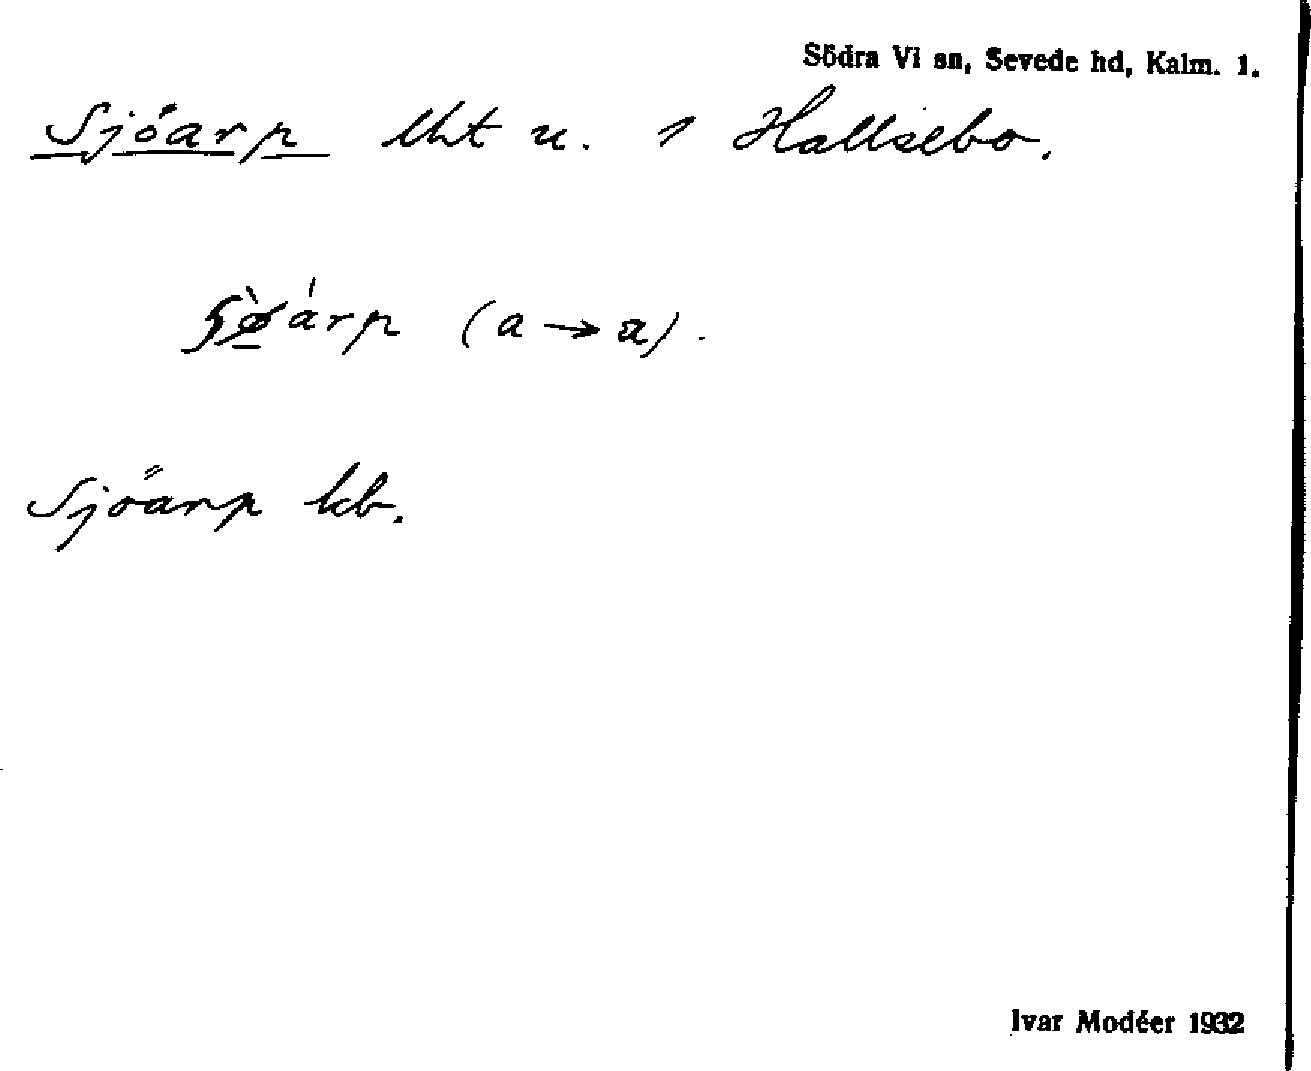 Södra Vi sn, Sevede hd, Kalm. l.
Sjöarp lht u. 1 Hallsebo.
(a → a).
Sjöarp kb.
Ivar Modéer 1932